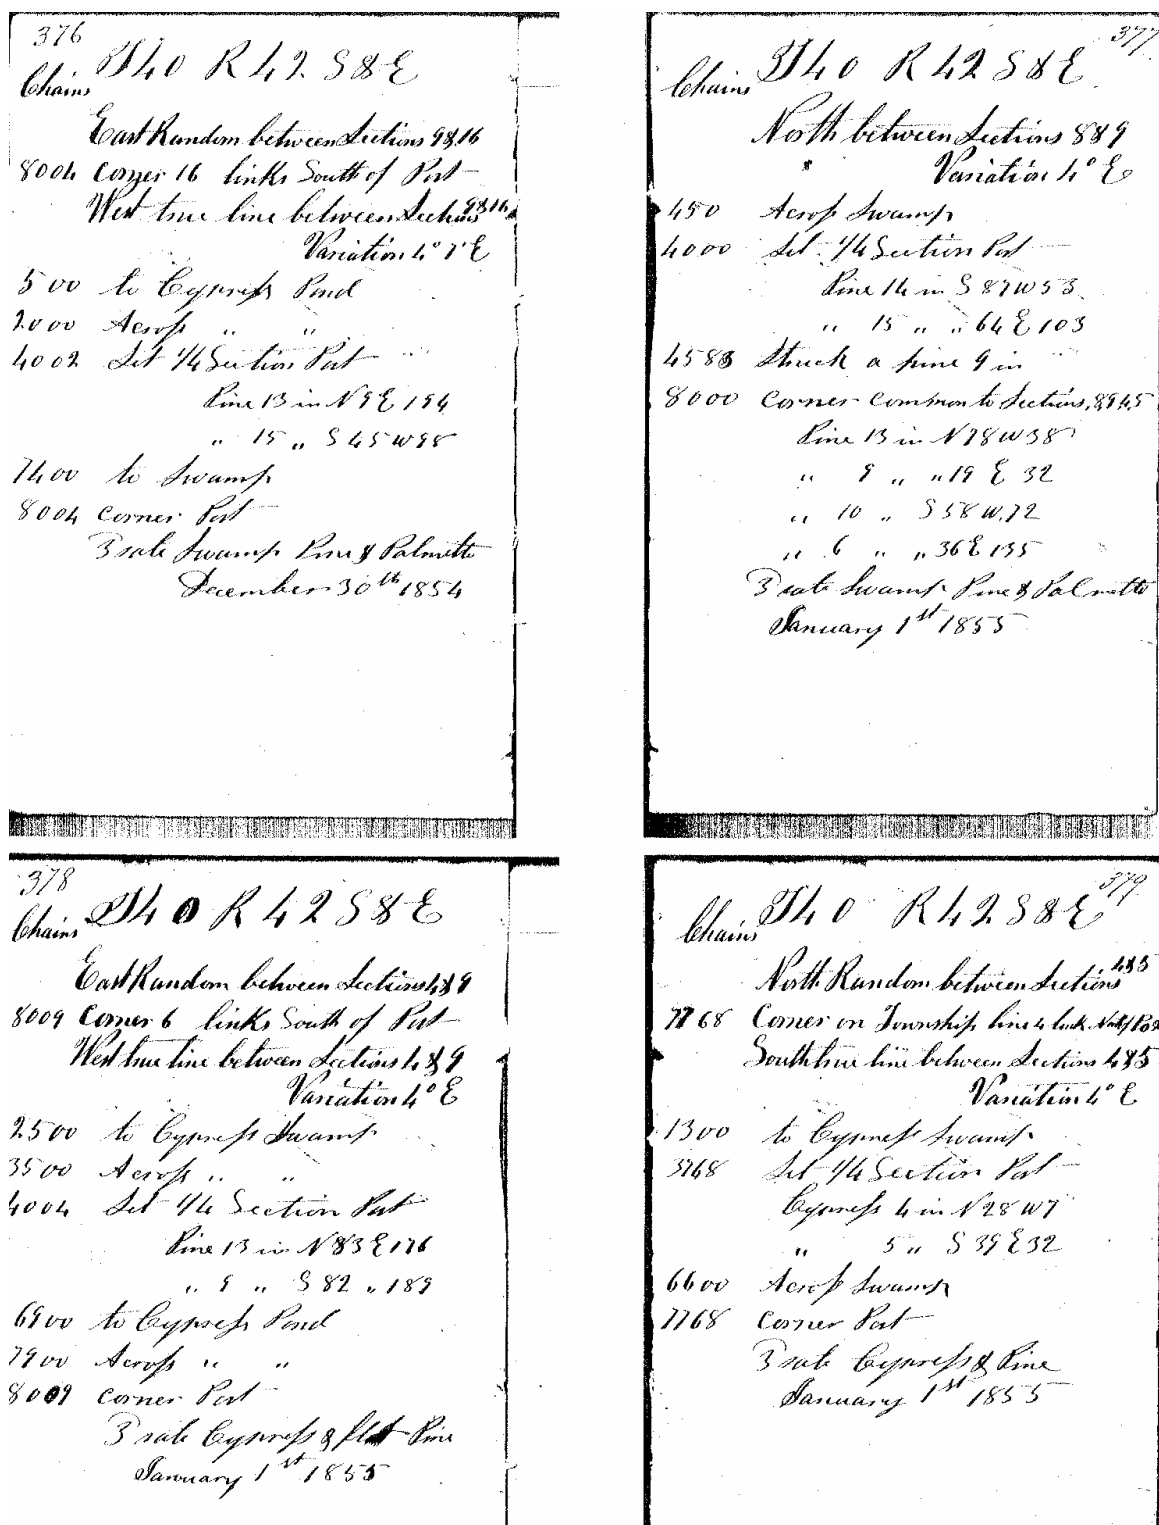 376
T40 R42 S&E
Chains
East Random between Sections 9&16
8004 Corner 16 links South of Post
West true line between Sections 9&16
Variation 4° 7' E
500 to Cypress Pond
2000 Across " "
4002 Set 1/4 Section Post
Pine 13 in N 9 E 194
" 15 " S 45 W 98
7400 to Swamp
8004 Corner Post
3 rate Swamp Pine & Palmetto
December 30th 1854
377
T40 R42 S&E
Chains
North between Sections 8&9
Variation 4° E
450 Across Swamp
4000 Set 1/4 Section Post
Pine 14 in S 87 W 53
" 15 " " 64 E 103
4583 Struck a pine 9 in
8000 Corner Common to Sections, 8,9,4,5
Pine 13 in N 78 W 38
" 9 " " 19 E 32
" 10 " S 58 W. 72
" 6 " " 36 E 135
3 rate Swamp Pine & Palmetto
January 1st 1855
378
T40 R42 S&E
Chains
East Random between Sections 4&9
8009 Corner 6 links South of Post
West true line between Sections 4&9
Variation 4° E
2500 to Cypress Swamp
3500 Across " "
4004 Set 1/4 Section Post
Pine 13 in N 83 E 176
" 9 " S 82 " 189
6900 to Cypress Pond
7900 Across " "
8009 Corner Post
3 rate Cypress & flat Pine
January 1st 1855
379
T40 R42 S&E
Chains
North Random between Sections 4&5
7768 Corner on Township line 4 link of Pos
South true line between Sections 4&5
Variation 4° E
1300 to Cypress Swamp
3768 Set 1/4 Section Post
Cypress 4 in N 28 W 7
" 5 " S 39 E 32
6600 Across Swamp
7768 Corner Post
3 rate Cypress & Pine
January 1st 1855